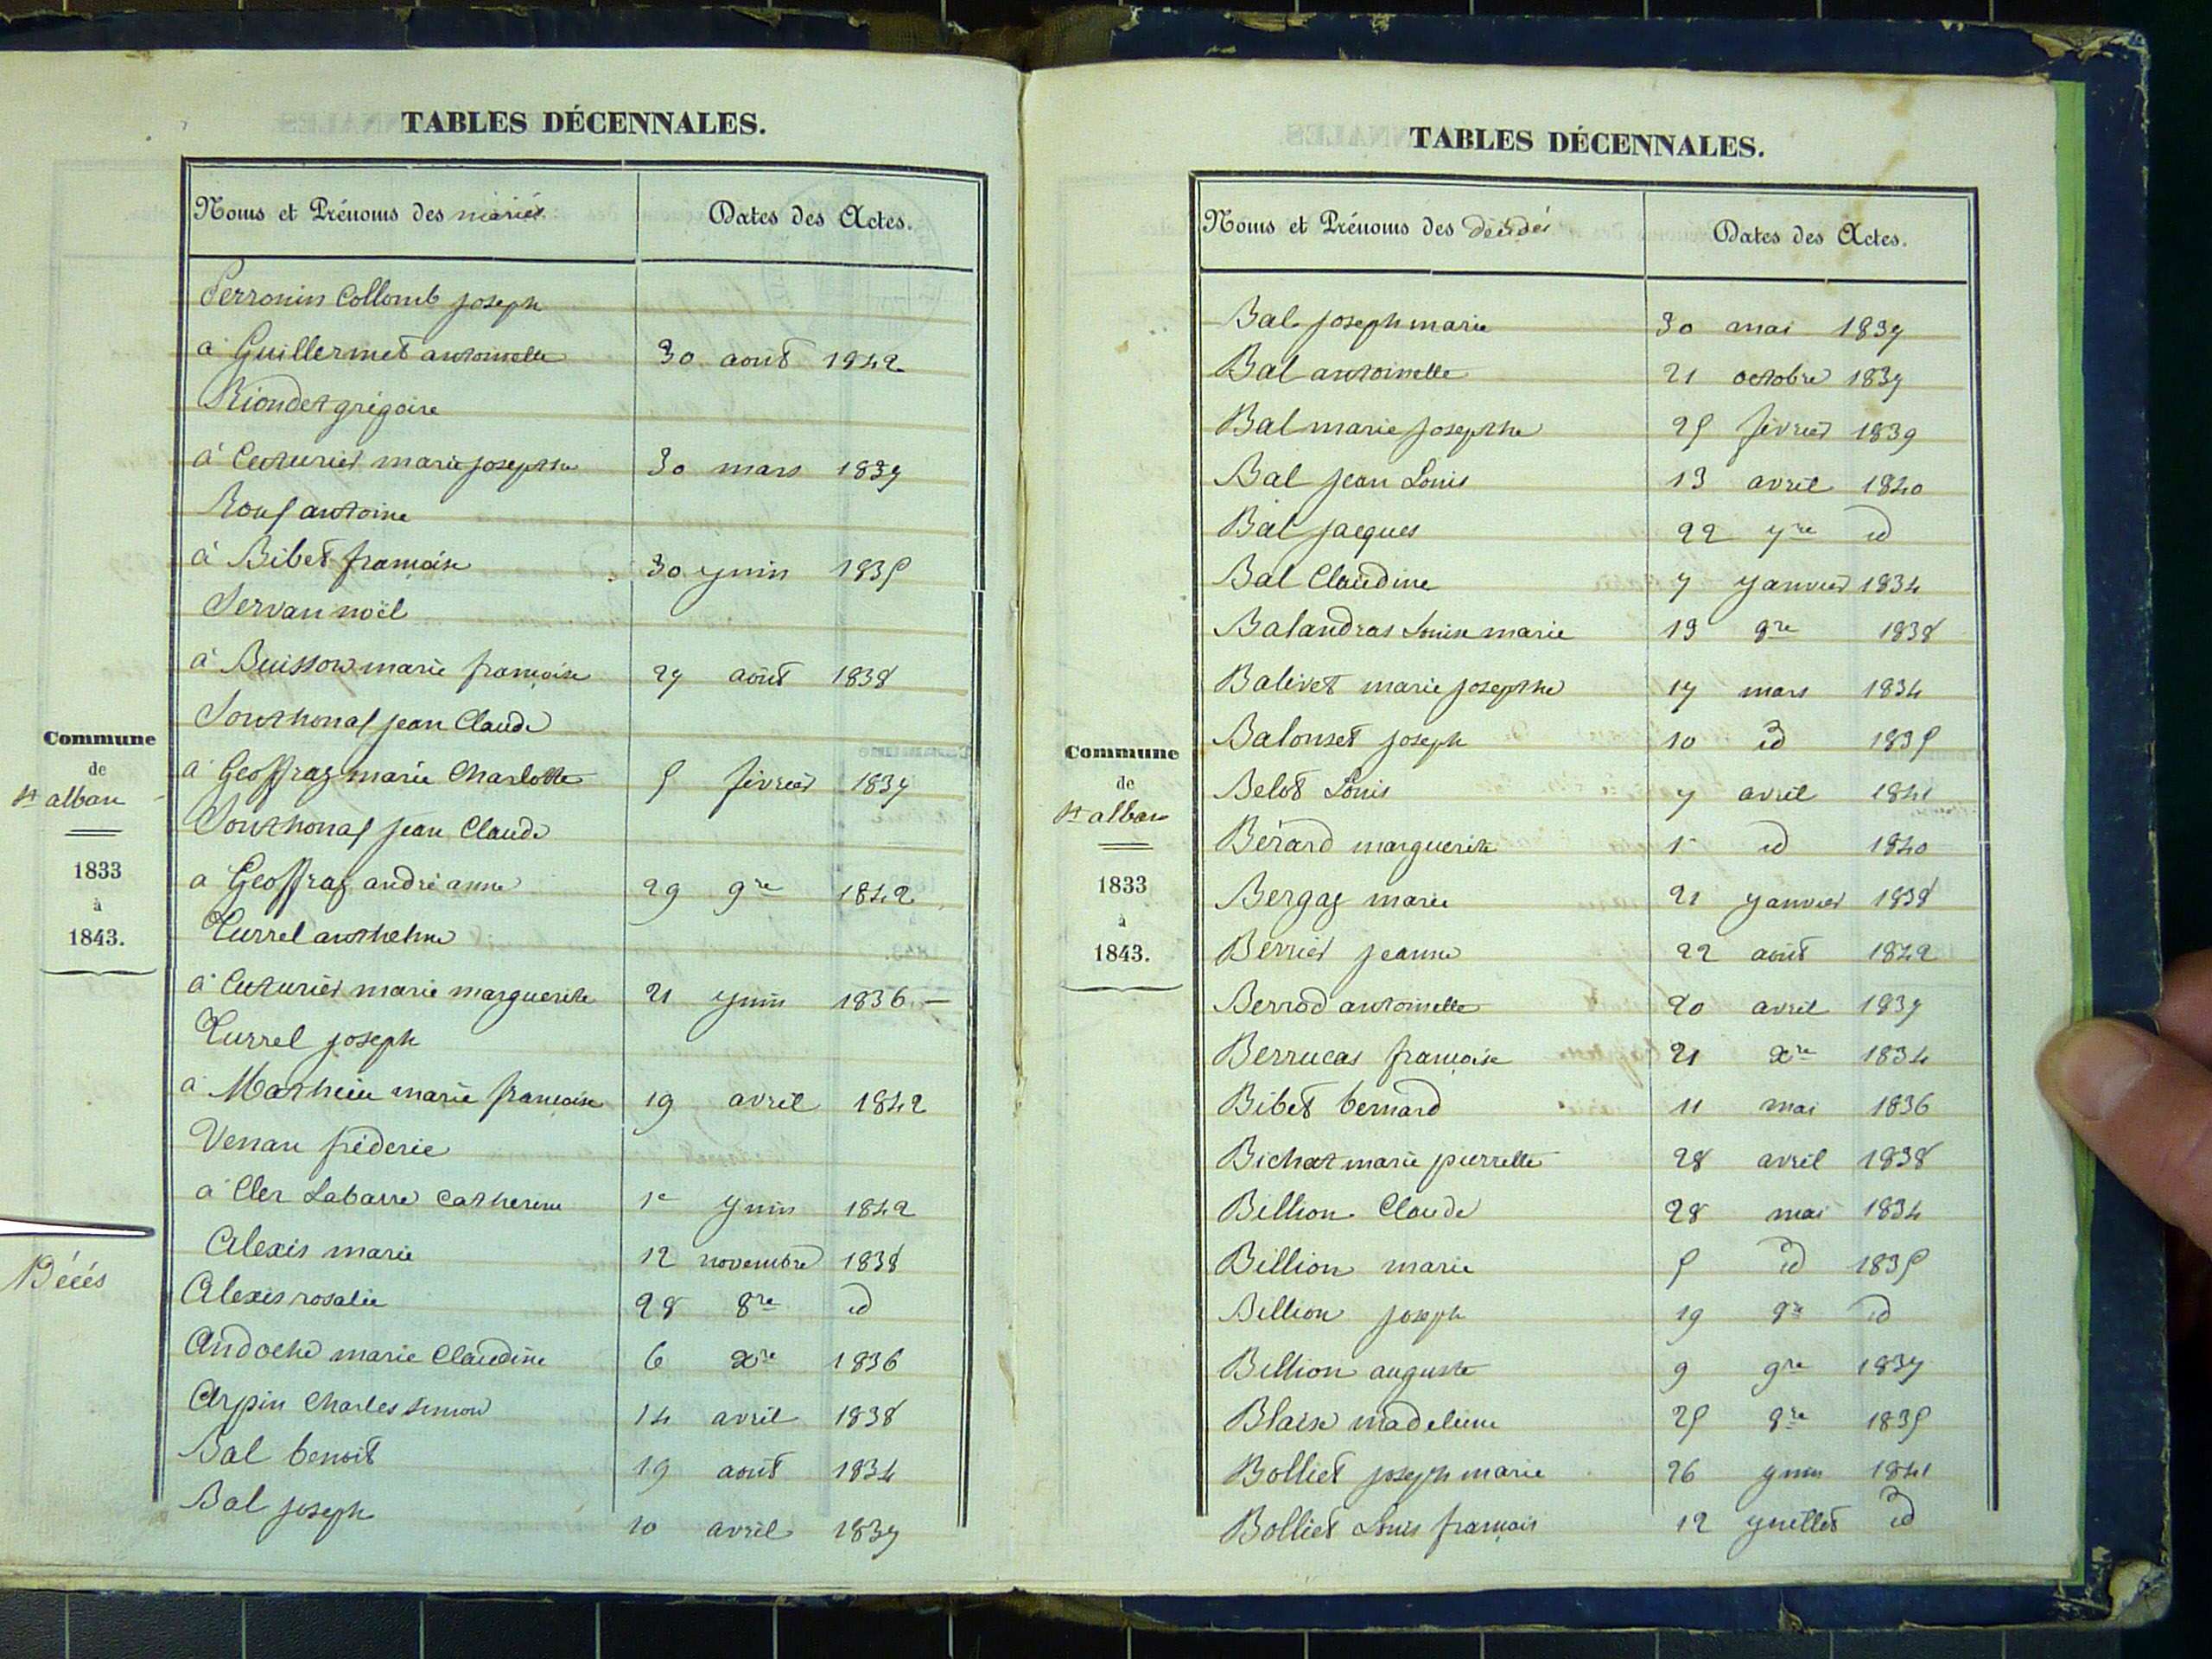 TABLES DÉCENNALES.
Noms et Prénoms des mariés
Dates des Actes.
Perronin Collomb joseph
à Guillermet antoinette 30 aout 1942
Riondet grégoire
à Cuturier marie josephte 30 mars 1837
Rouf antoine
à Bibet françoise 30 juin 1835
Servan noël
à Buisson marie françoise 27 août 1838
Southonaz jean Claude
à Geoffraz marie Charlotte 5 février 1837
Southonaz jean Claude
à Geoffraz andré anne 29 9re 1842
Turrel anthelme
à Cuturier marie marguerite 21 juin 1836 —
Turrel joseph
à Mathieu marie francoise 19 avril 1842
Venan fréderic
à Cler Labarre Catherine 1e juin 1842
Alexis marie 12 novembre 1838
Alexis rosalie 28 8re id
Andoche marie Claudine 6 xre 1836
Arpin Charles simon 14 avril 1838
Bal benoit 19 aout 1834
Bal joseph 10 avril 1837
Commune
de
st alban
1833
à
1843.
Décés
TABLES DÉCENNALES.
Noms et Prénoms des décédés
Dates des Actes.
Bal joseph marie 30 mai 1837
Bal antoinette 21 octobre 1837
Bal marie josephte 25 février 1839
Bal jean Louis 13 avril 1840
Bal jacques 22 7re id
Bal Claudine 7 janvier 1834
Balandras Louise marie 13 9re 1838
Balivet marie josephte 17 mars 1834
Balouset joseph 10 id 1835
Belot Louis 7 avril 1841
Bérard marguerite 1r id 1840
Bergaz marie 21 janvier 1838
Berrier jeanne 22 août 1842
Berrod antoinette 20 avril 1837
Berrucas françoise 21 xre 1834
Bibet bernard 11 mai 1836
Bichat marie pierrette 28 avril 1838
Billion Claude 28 mai 1834
Billion marie 5 id 1835
Billion joseph 19 9re id
Billion auguste 9 9re 1837
Blaise madeleine 25 8re 1835
Bolliet joseph marie 26 juin 1841
Bolliet Louis françois 12 juillet id
Commune
de
st alban
1833
à
1843.